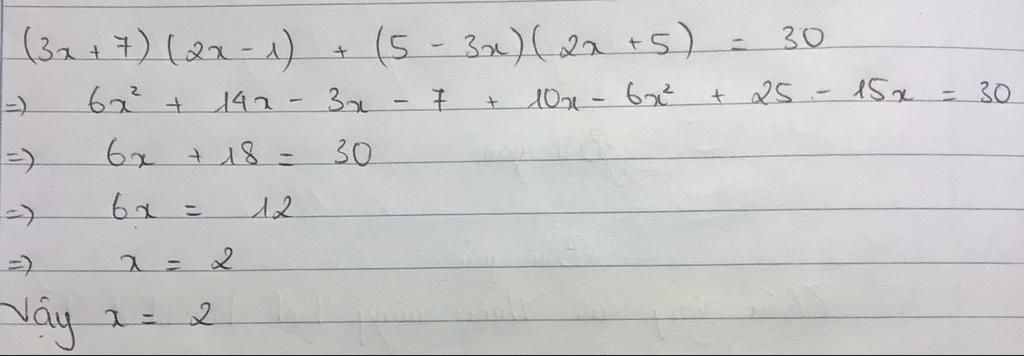 (3x + 7)(2x - 1) + (5 - 3x)(2x + 5) = 30
=) 6x² + 14x - 3x - 7 + 10x - 6x² + 25 - 15x = 30
=) 6x + 18 = 30
=) 6x = 12
=) x = 2
Vậy x = 2